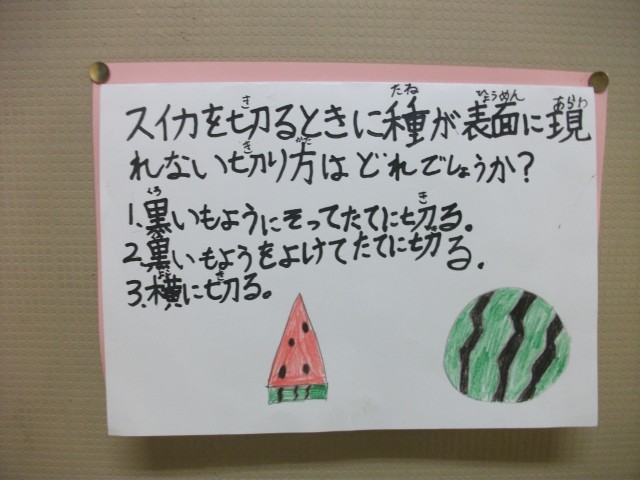 スイカを切るときに種が表面に現
れない切り方はどれでしょうか？
1.黒いもようにそってたてに切る。
2.黒いもようをよけてたてに切る.
3.横に切る。